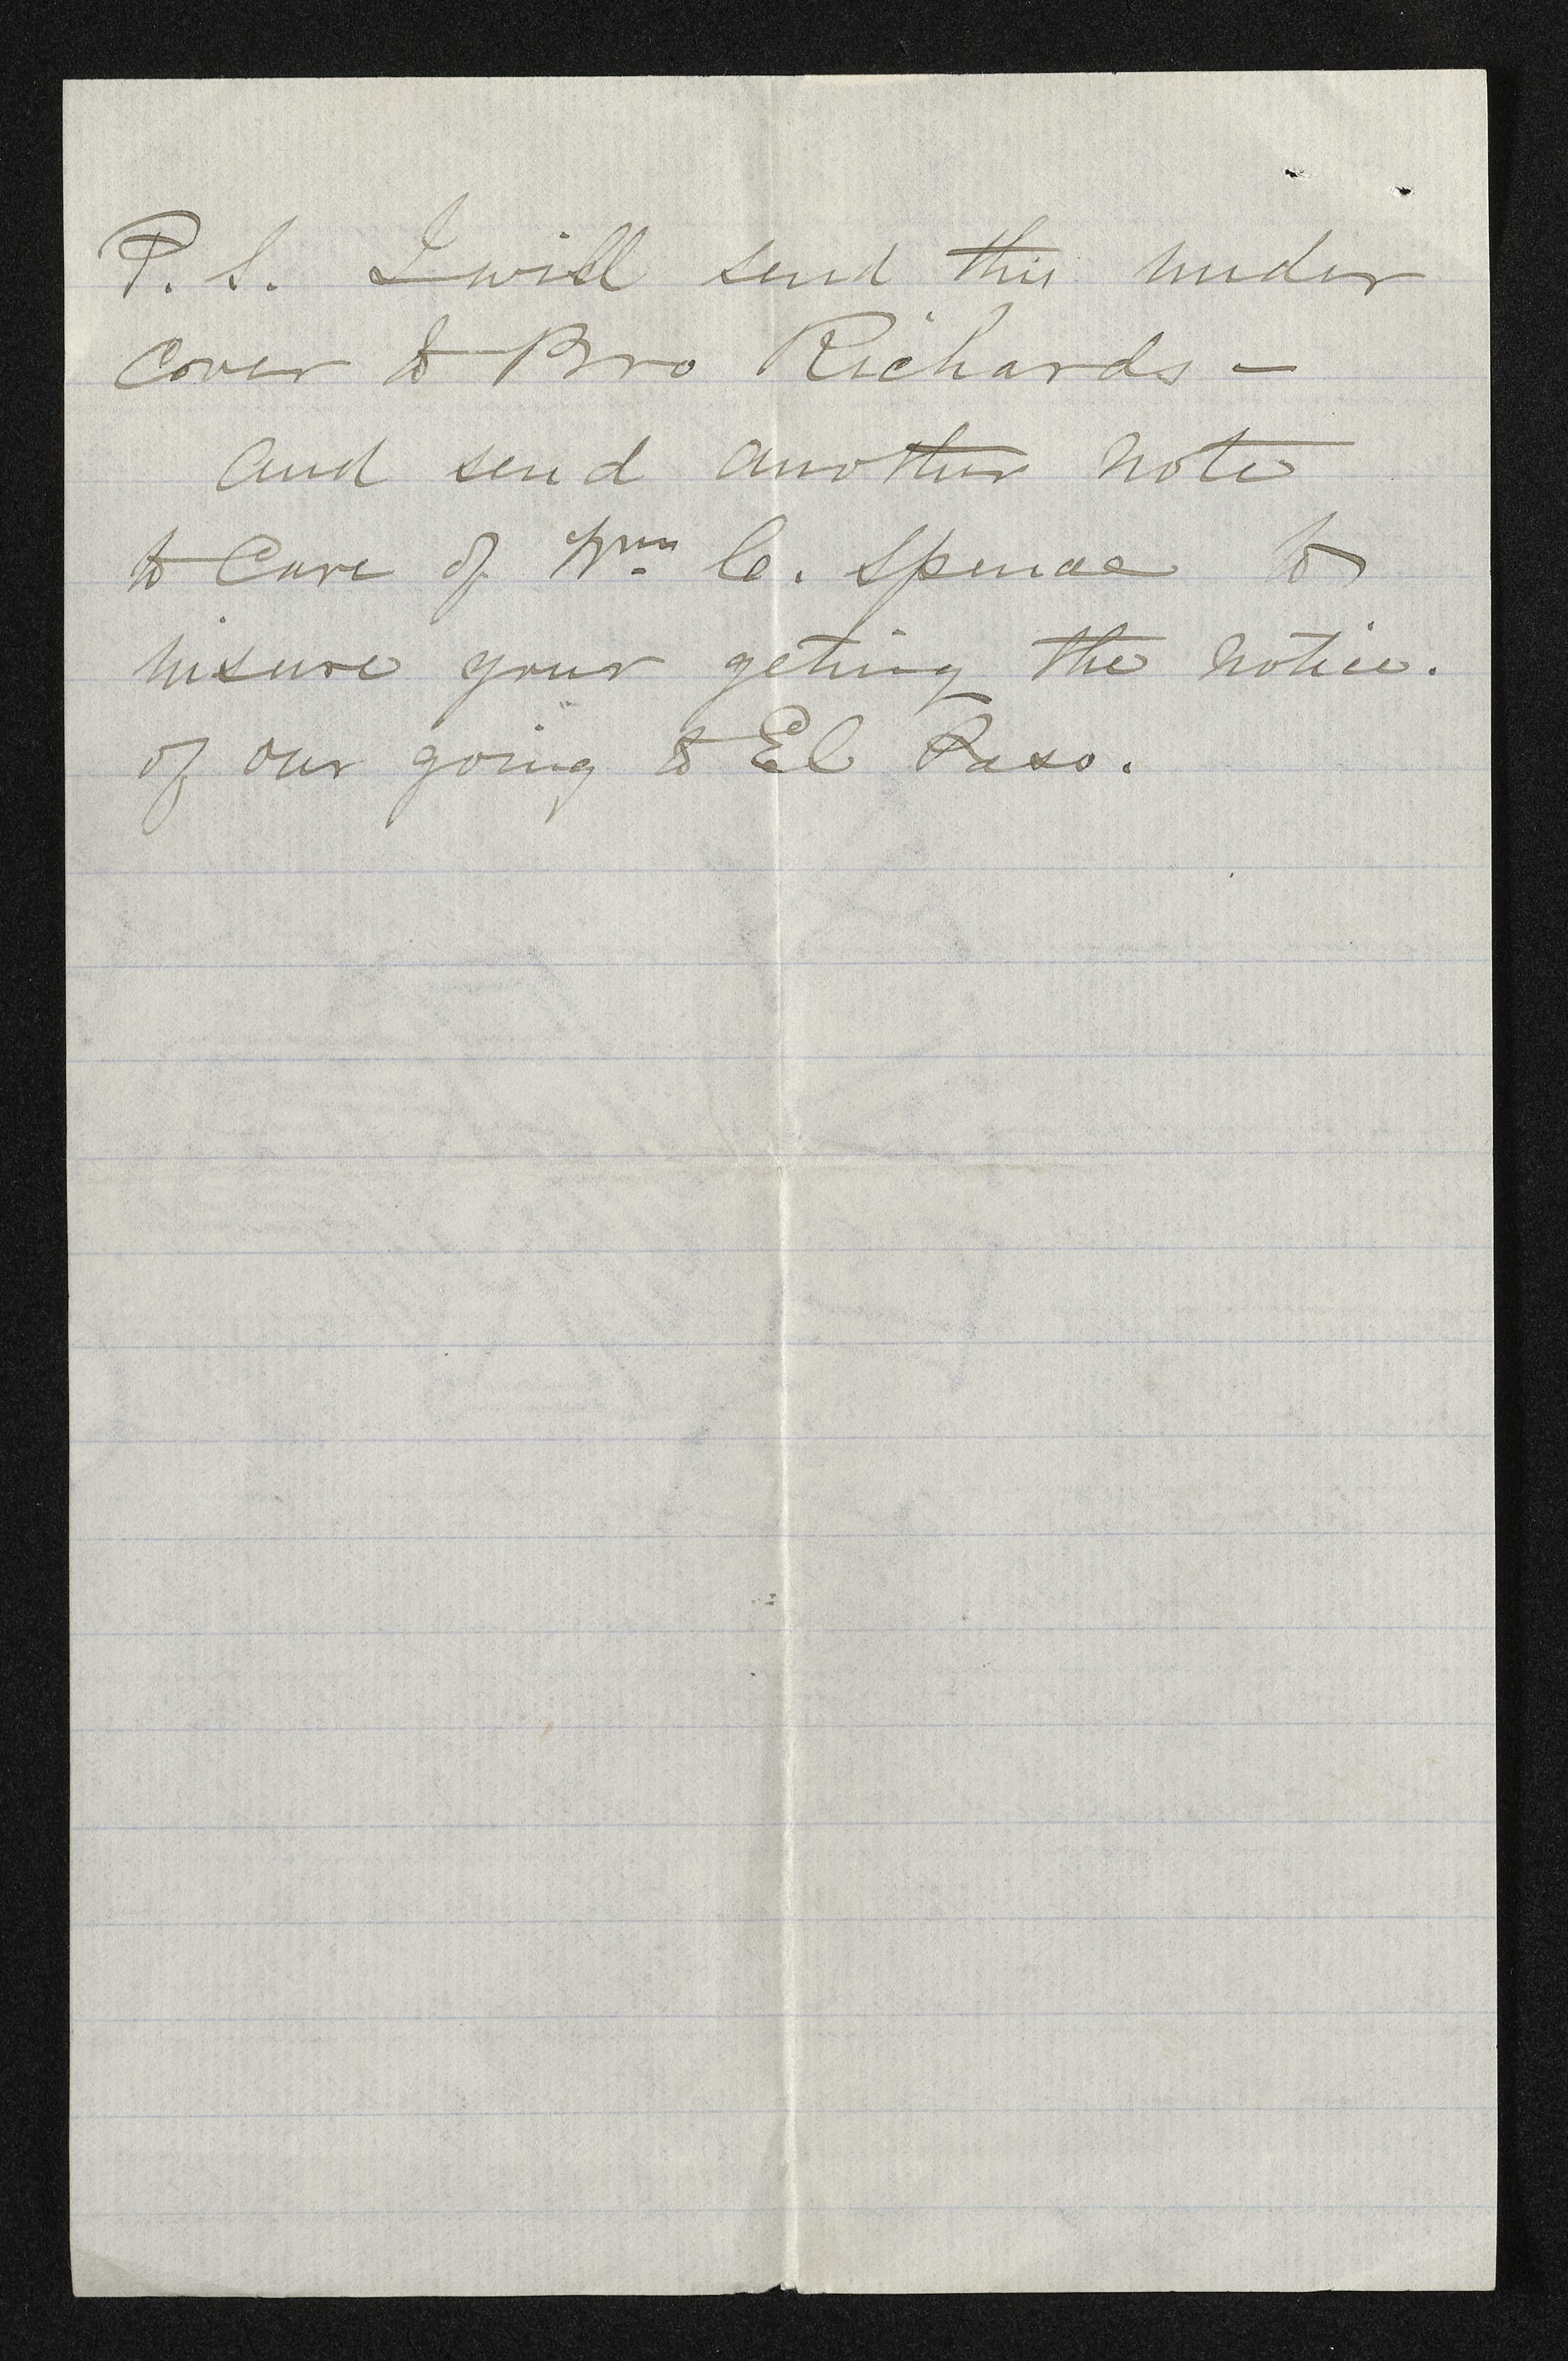 P. S. I will send this under
cover to Bro Richards —
and send another note
to Care of Wm. C. Spence to
insure your geting the notice.
of our going to El Paso.